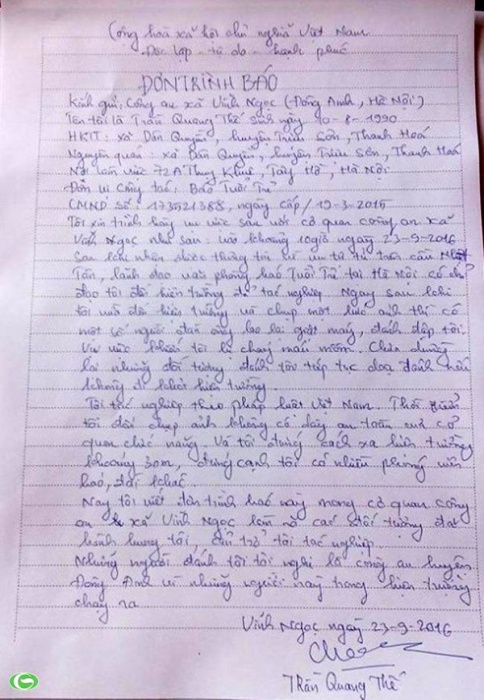 Cộng hoà xã hội chủ nghĩa Việt Nam
Độc lập - tự do - hạnh phúc
ĐƠN TRÌNH BÁO
Kính gửi: Công an xã Vĩnh Ngọc (Đông Anh, Hà Nội)
Tên tôi là Trần Quang Thế sinh ngày 10-8-1990
HKTT: xã Dân Quyền, huyện Triệu Sơn, Thanh Hoá
Nguyên quán: xã Dân Quyền, huyện Triệu Sơn, Thanh Hoá
Nơi làm việc 72A Thụy Khuê, Tây Hồ, Hà Nội
Đơn vị công tác: Báo Tuổi Trẻ
CMND số: 173521388, ngày cấp 19-3-2015
Tôi xin trình báo vụ việc sau với cơ quan công an xã
Vĩnh Ngọc như sau: vào khoảng 10giờ ngày 23-9-2016
Sau khi nhận được thông tin có vụ tự tử trên cầu Nhật
Tân, lãnh đạo văn phòng báo Tuổi Trẻ tại Hà Nội có chỉ
đạo tôi đến hiện trường để tác nghiệp. Ngay sau khi
tôi vừa đến hiện trường và chụp một bức ảnh thì có
một số người đàn ông lao lại giật máy, đánh đập tôi.
Vụ việc khiến tôi bị chảy máu mồm. Chưa dừng
lại những đối tượng đánh tôi tiếp tục doạ đánh nếu
không đi khỏi hiện trường.
Tôi tác nghiệp theo pháp luật Việt Nam. Thời điểm
tôi đến chụp ảnh không có dây an toàn của cơ
quan chức năng. Và tôi đứng cách xa hiện trường
khoảng 30m, đứng cạnh tôi có nhiều phóng viên
báo, đài khác.
Nay tôi viết đơn trình báo này mong cơ quan công
an xã Vĩnh Ngọc làm rõ các đối tượng đã
hành hung tôi, cản trở tôi tác nghiệp.
Những người đánh tôi tôi nghi là công an huyện
Đông Anh vì những người này trong hiện trường
chạy ra
Vĩnh Ngọc ngày 23-9-2016
Trần Quang Thế